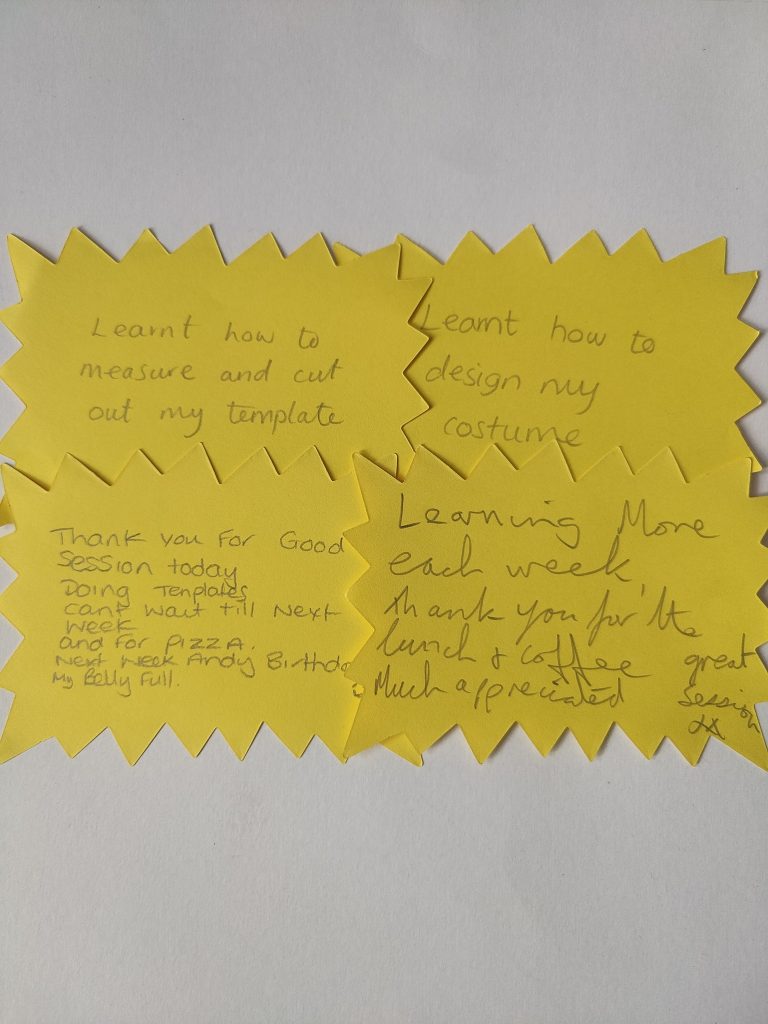 Learnt how to
measure and cut
out my template
Learnt how to
design my
costume
Thank you For Good
Session today
Doing Templates
cant wait till Next
week
and for PIZZA.
Next Week Andy Birthda
My Belly Full.
Learning More
each week
thank you for the
lunch & coffee
Much appreciated
great
session
xx